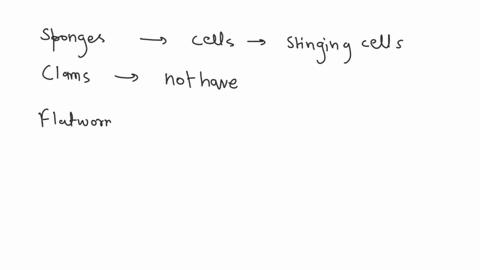 Sponges → cells → Stinging cells
Clams → not have
Flatworm